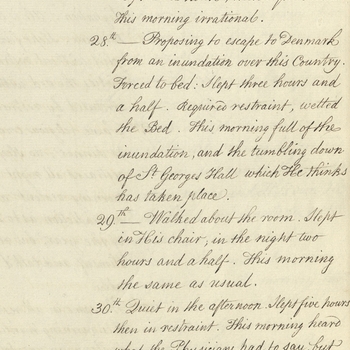 This morning irrational.
28th — Proposing to escape to Denmark
from an inundation over this Country.
Forced to bed: Slept three hours and
a half. Required restraint, wetted
the Bed. This morning full of the
inundation, and the tumbling down
of St Georges Hall which He thinks
has taken place.
29th — Walked about the room. Slept
in His chair, in the night two
hours and a half. This morning
the same as usual.
30th Quiet in the afternoon. Slept five hours
then in restraint. This morning heard
what the Physicians had to say but